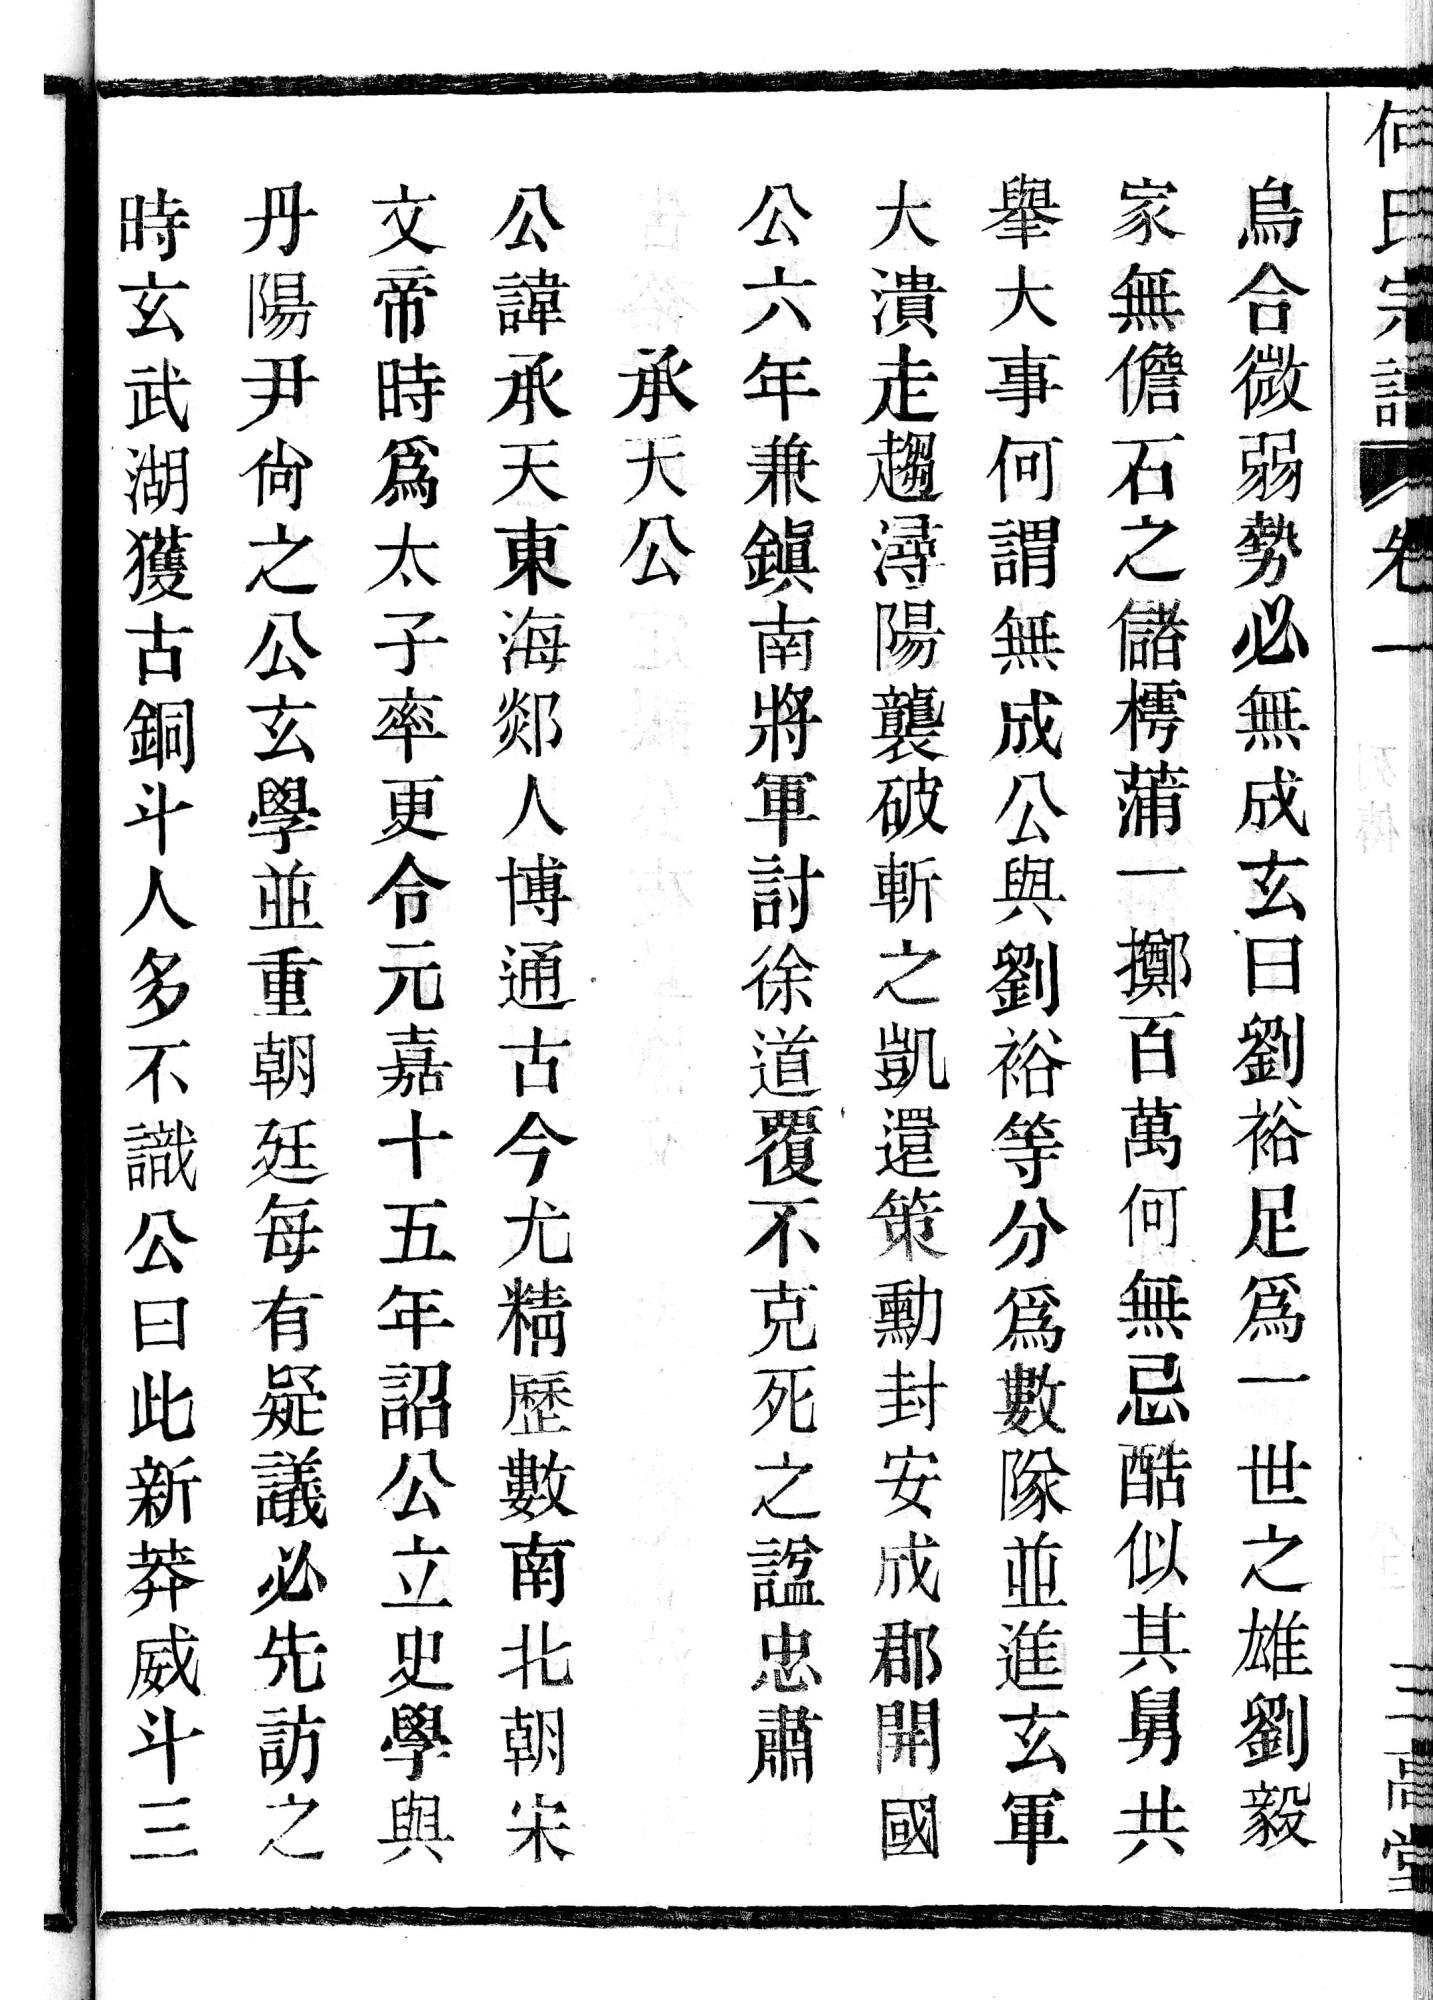 何氏宗譜 卷一 三高堂
烏合微弱勢必無成玄曰劉裕足爲一世之雄劉毅
家無儋石之儲樗蒲一擲百萬何無忌酷似其舅共
舉大事何謂無成公與劉裕等分爲數隊並進玄軍
大潰走趨潯陽襲破斬之凱還策勳封安成郡開國
公六年兼鎭南將軍討徐道覆不克死之諡忠肅
承天公
公諱承天東海郯人博通古今尤精歷數南北朝宋
文帝時爲太子率更令元嘉十五年詔公立史學與
丹陽尹尙之公玄學並重朝廷每有疑議必先訪之
時玄武湖獲古銅斗人多不識公曰此新莽威斗三